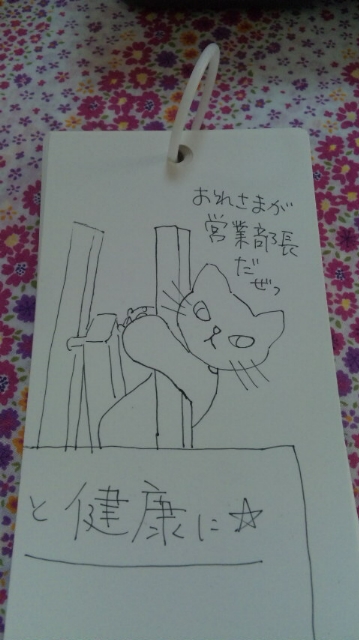 おれさまが
営業部長
だ
ぜっ
と健康に☆